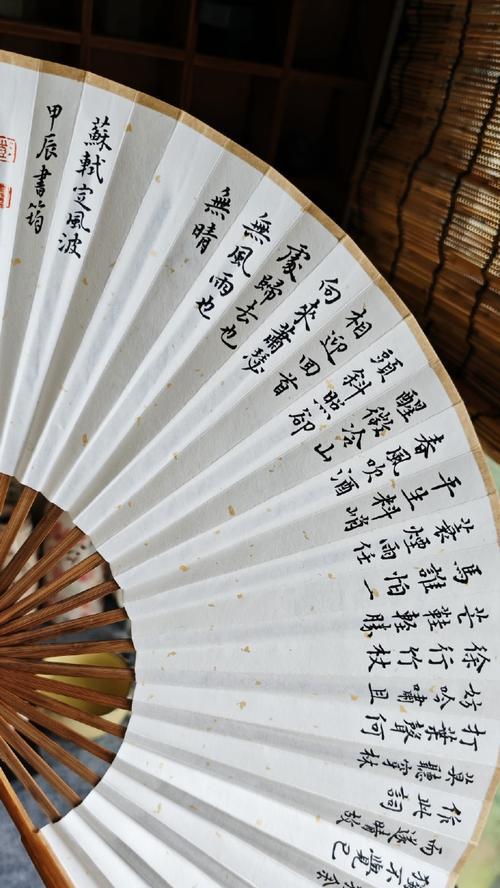 獨不覺已
而遂晴故
作此詞
莫聽穿林
打葉聲何
妨吟嘯且
徐行竹杖
芒鞋輕勝
馬誰怕一
蓑煙雨任
平生料峭
春風吹酒
醒微冷山
頭斜照卻
相迎回首
向來蕭瑟
處歸去也
無風雨也
無晴
蘇軾定風波
甲辰書筠